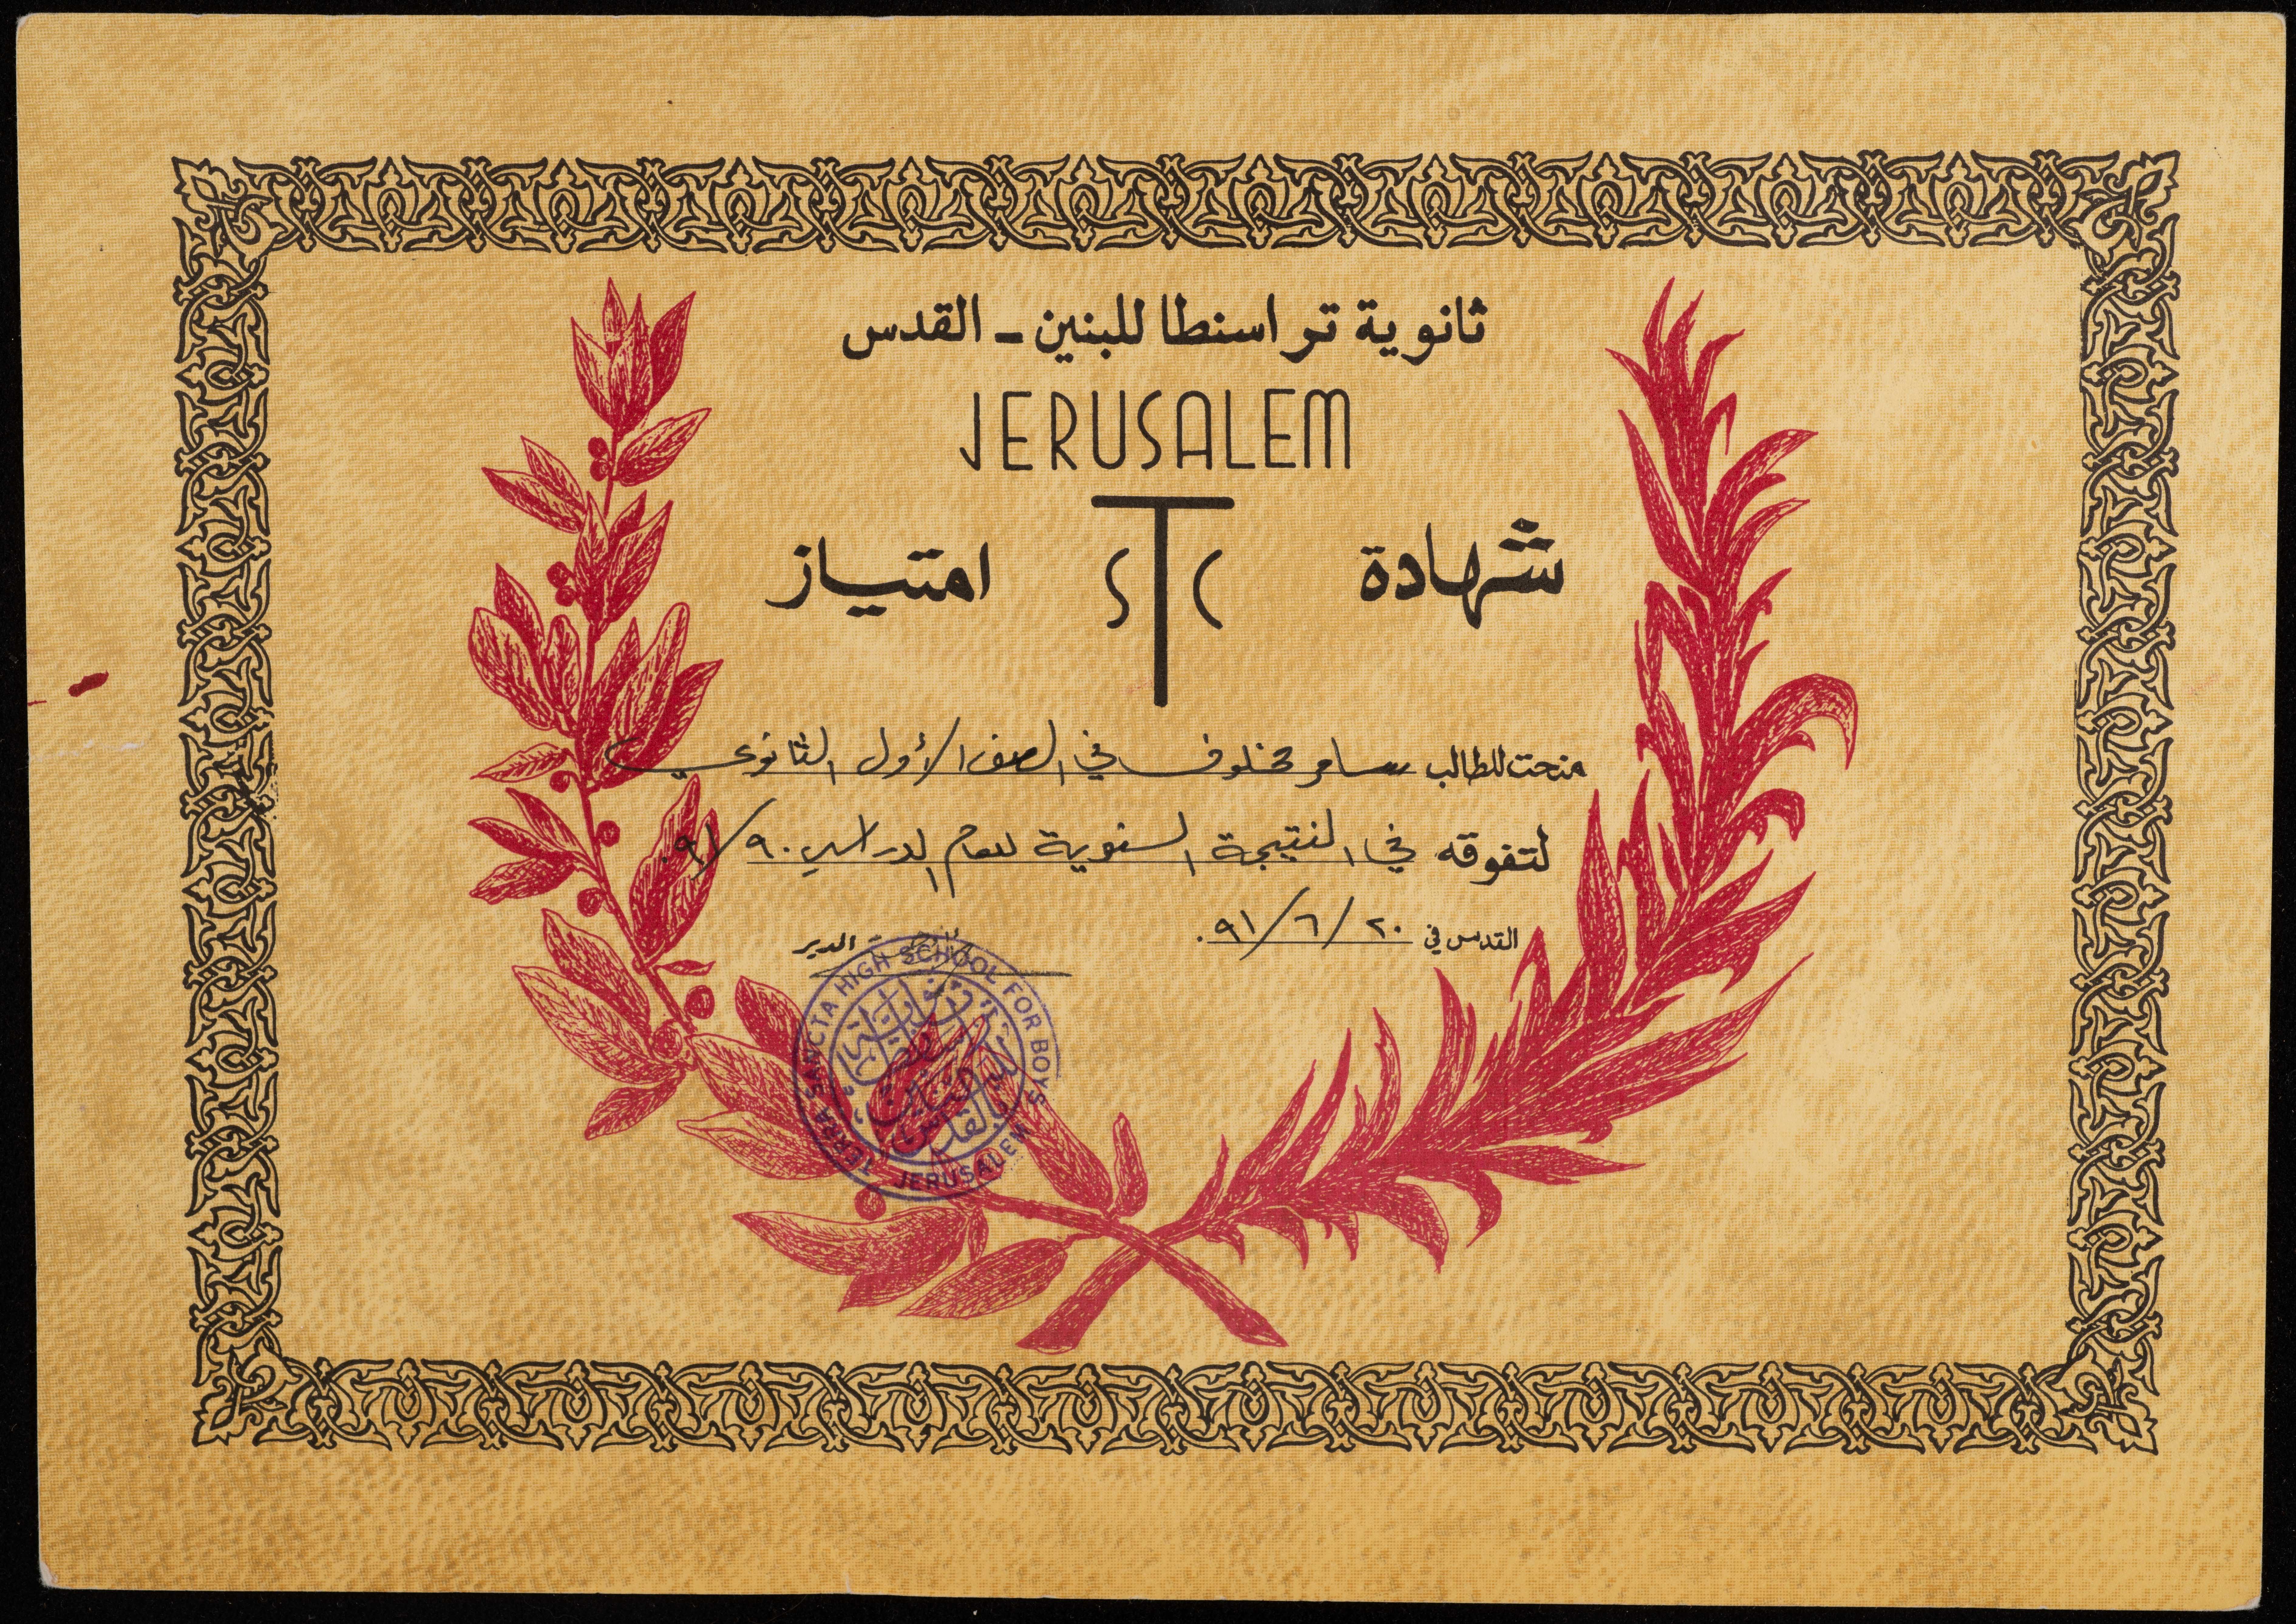 ثانوية تراسنطا للبنين - القدس
JERUSALEM
شهادة STC امتياز
منحت للطالب سامر مخلوف في الصف الأول الثانوي
لتفوقه في النتيجة السنوية للعام الدراسي ٩٠/٩١.
القدس في ٢٠/٦/٩١.
المدير
TERRA SANCTA HIGH SCHOOL FOR BOYS
JERUSALEM